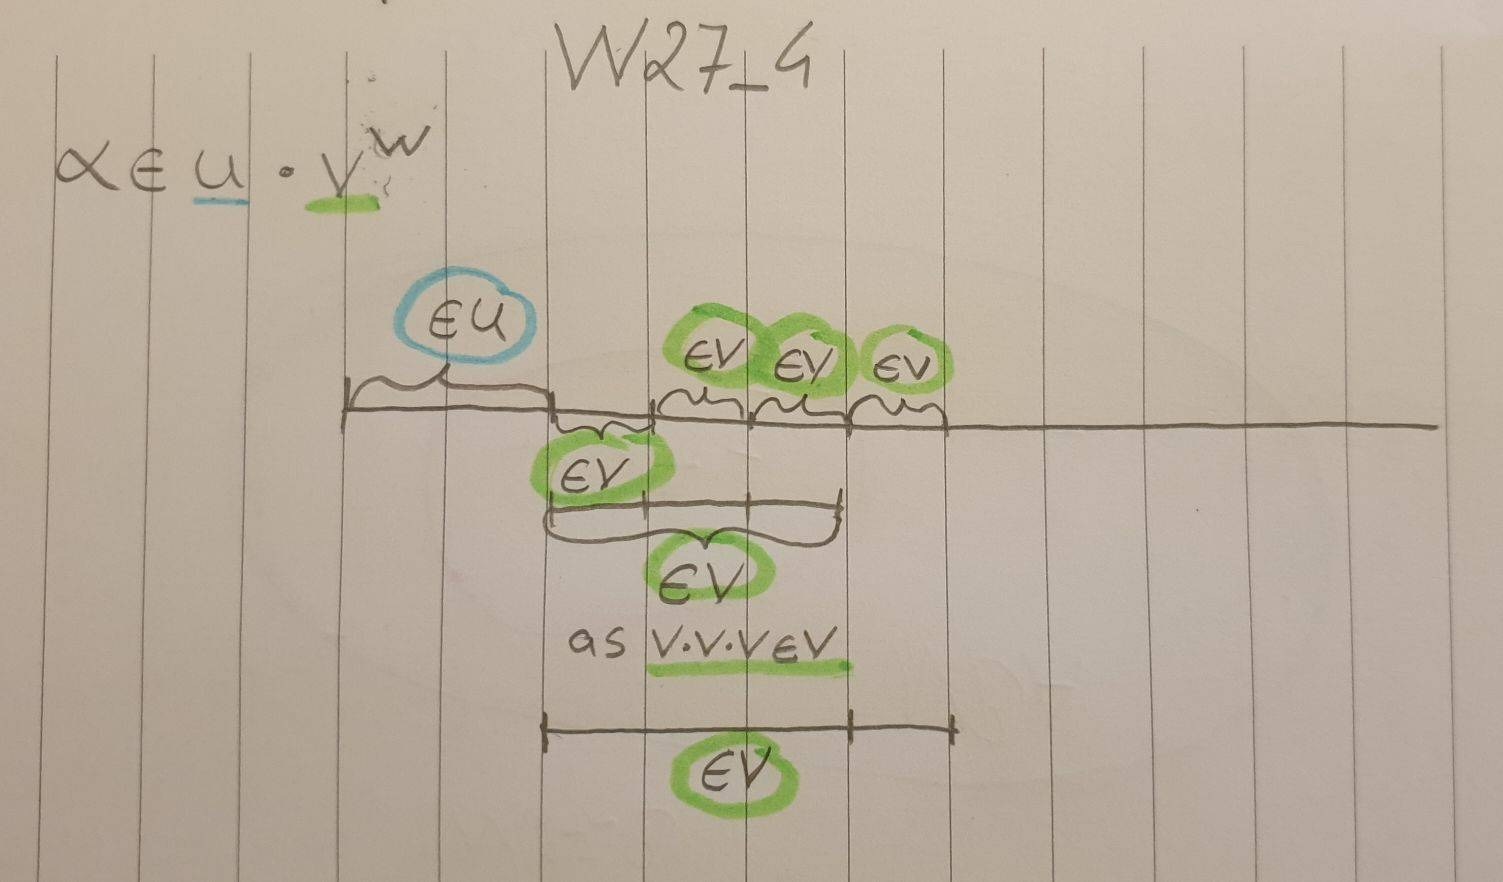 W27_4
α ∈ U · V^W
∈ U
∈V ∈V ∈V
∈V
∈V
as V·V·V ∈ V
∈V